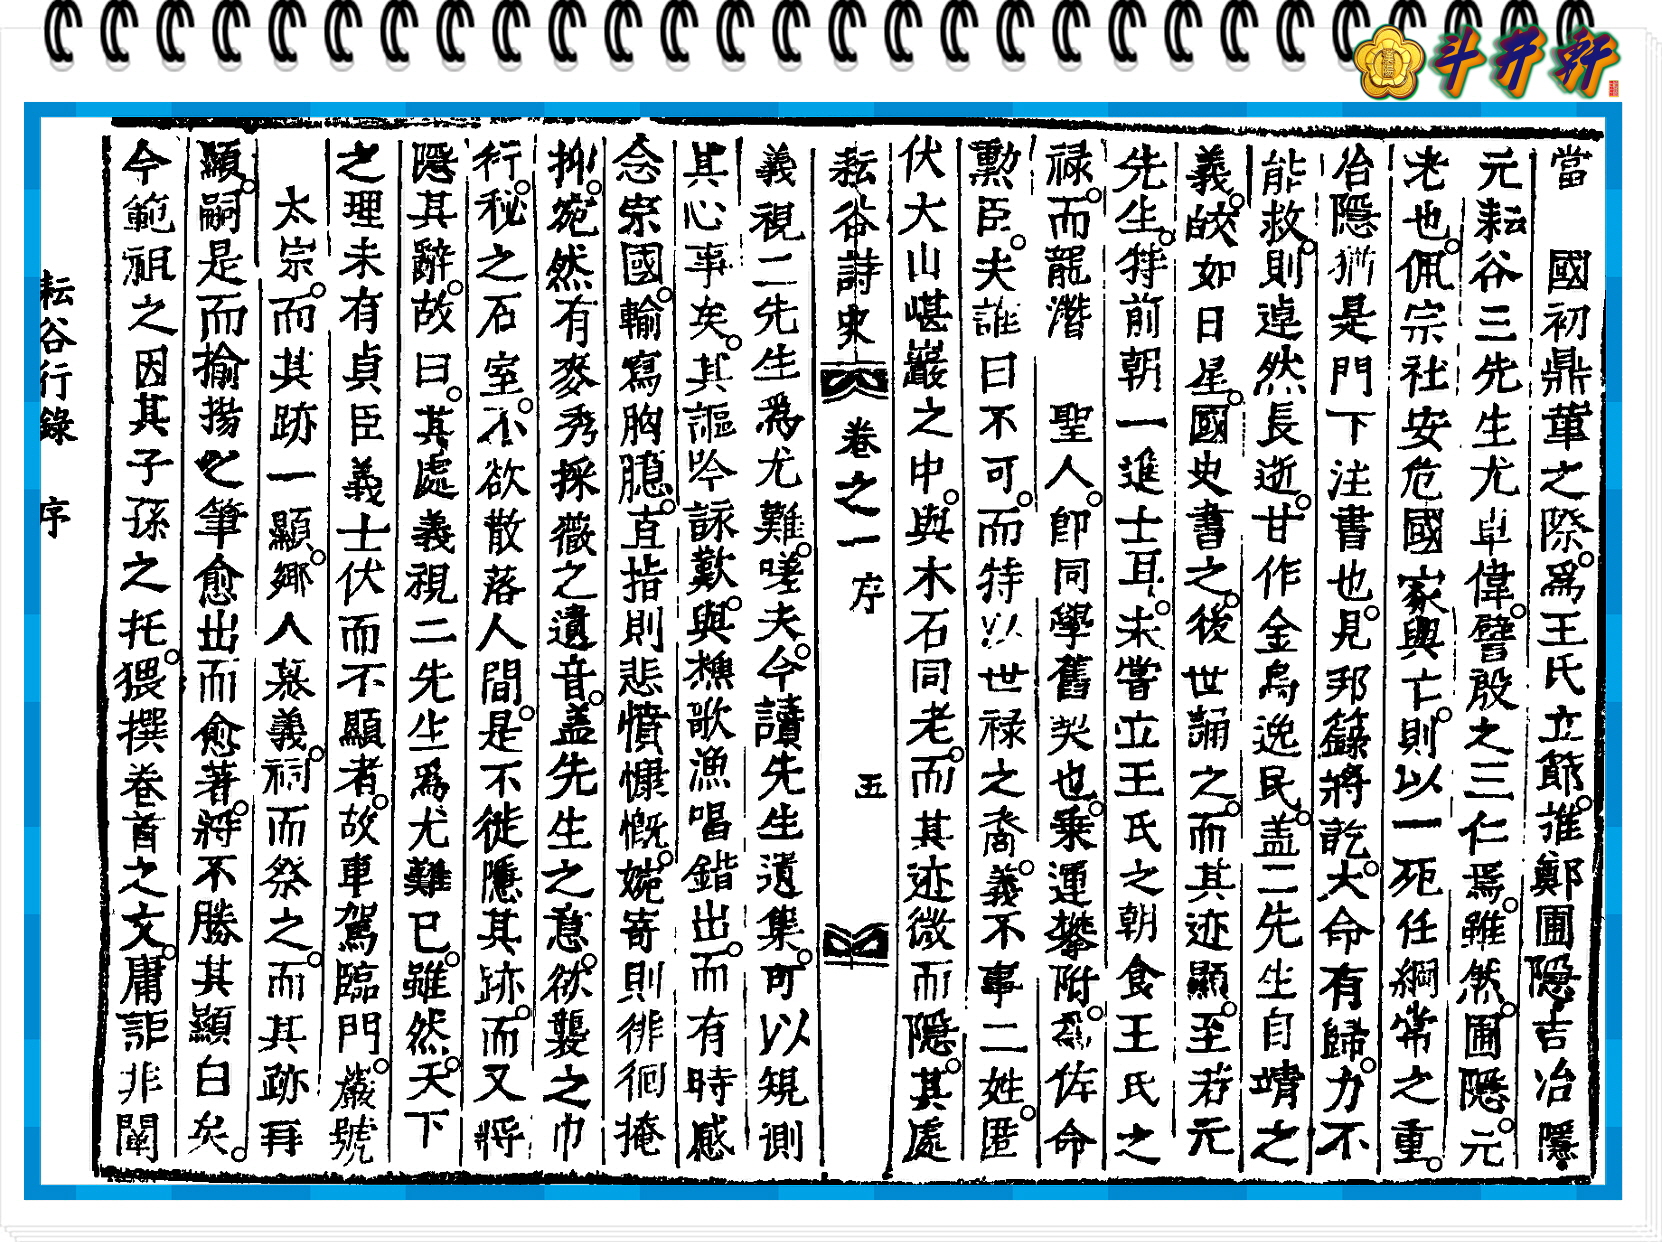 斗井軒
當 國初鼎革之際爲王氏立節推鄭圃隱吉冶隱
元耘谷三先生尤卓偉譬殷之三仁焉雖然圃隱元
老也佩宗社安危國家與亡則以一死任綱常之重
冶隱猶是門下注書也見邦籙將訖大命有歸力不
能救則逴然長逝甘作金烏逸民盖二先生自靖之
義皎如日星國史書之後世誦之而其迹顯至若元
先生特前朝一進士耳未嘗立王氏之朝食王氏之
祿而龍潛 聖人卽同學舊契也乘運攀附爲佐命
勳臣夫誰曰不可而特以世祿之裔義不事二姓匿
伏大山嵁巖之中與木石同老而其迹微而隱其處
耘谷詩史 卷之一 序 五
義視二先生爲尤難嗟夫今讀先生遺集可以䂓測
其心事矣其謳吟詠歎與樵歌漁唱錯出而有時感
念宗國輸寫胸臆直指則悲憤慷慨婉寄則徘徊掩
抑宛然有麥秀採薇之遺音盖先生之意欲襲之巾
衍秘之石室不欲散落人間是不徒隱其跡而又將
隱其辭故曰其處義視二先生爲尤難已雖然天下
之理未有貞臣義士伏而不顯者故車駕臨門巖號
太宗而其跡一顯鄕人慕義祠而祭之而其跡再
顯嗣是而揄揚之筆愈出而愈著將不勝其顯白矣
今範祖之因其子孫之托猥撰卷首之文庸詎非闡
耘谷行錄 序